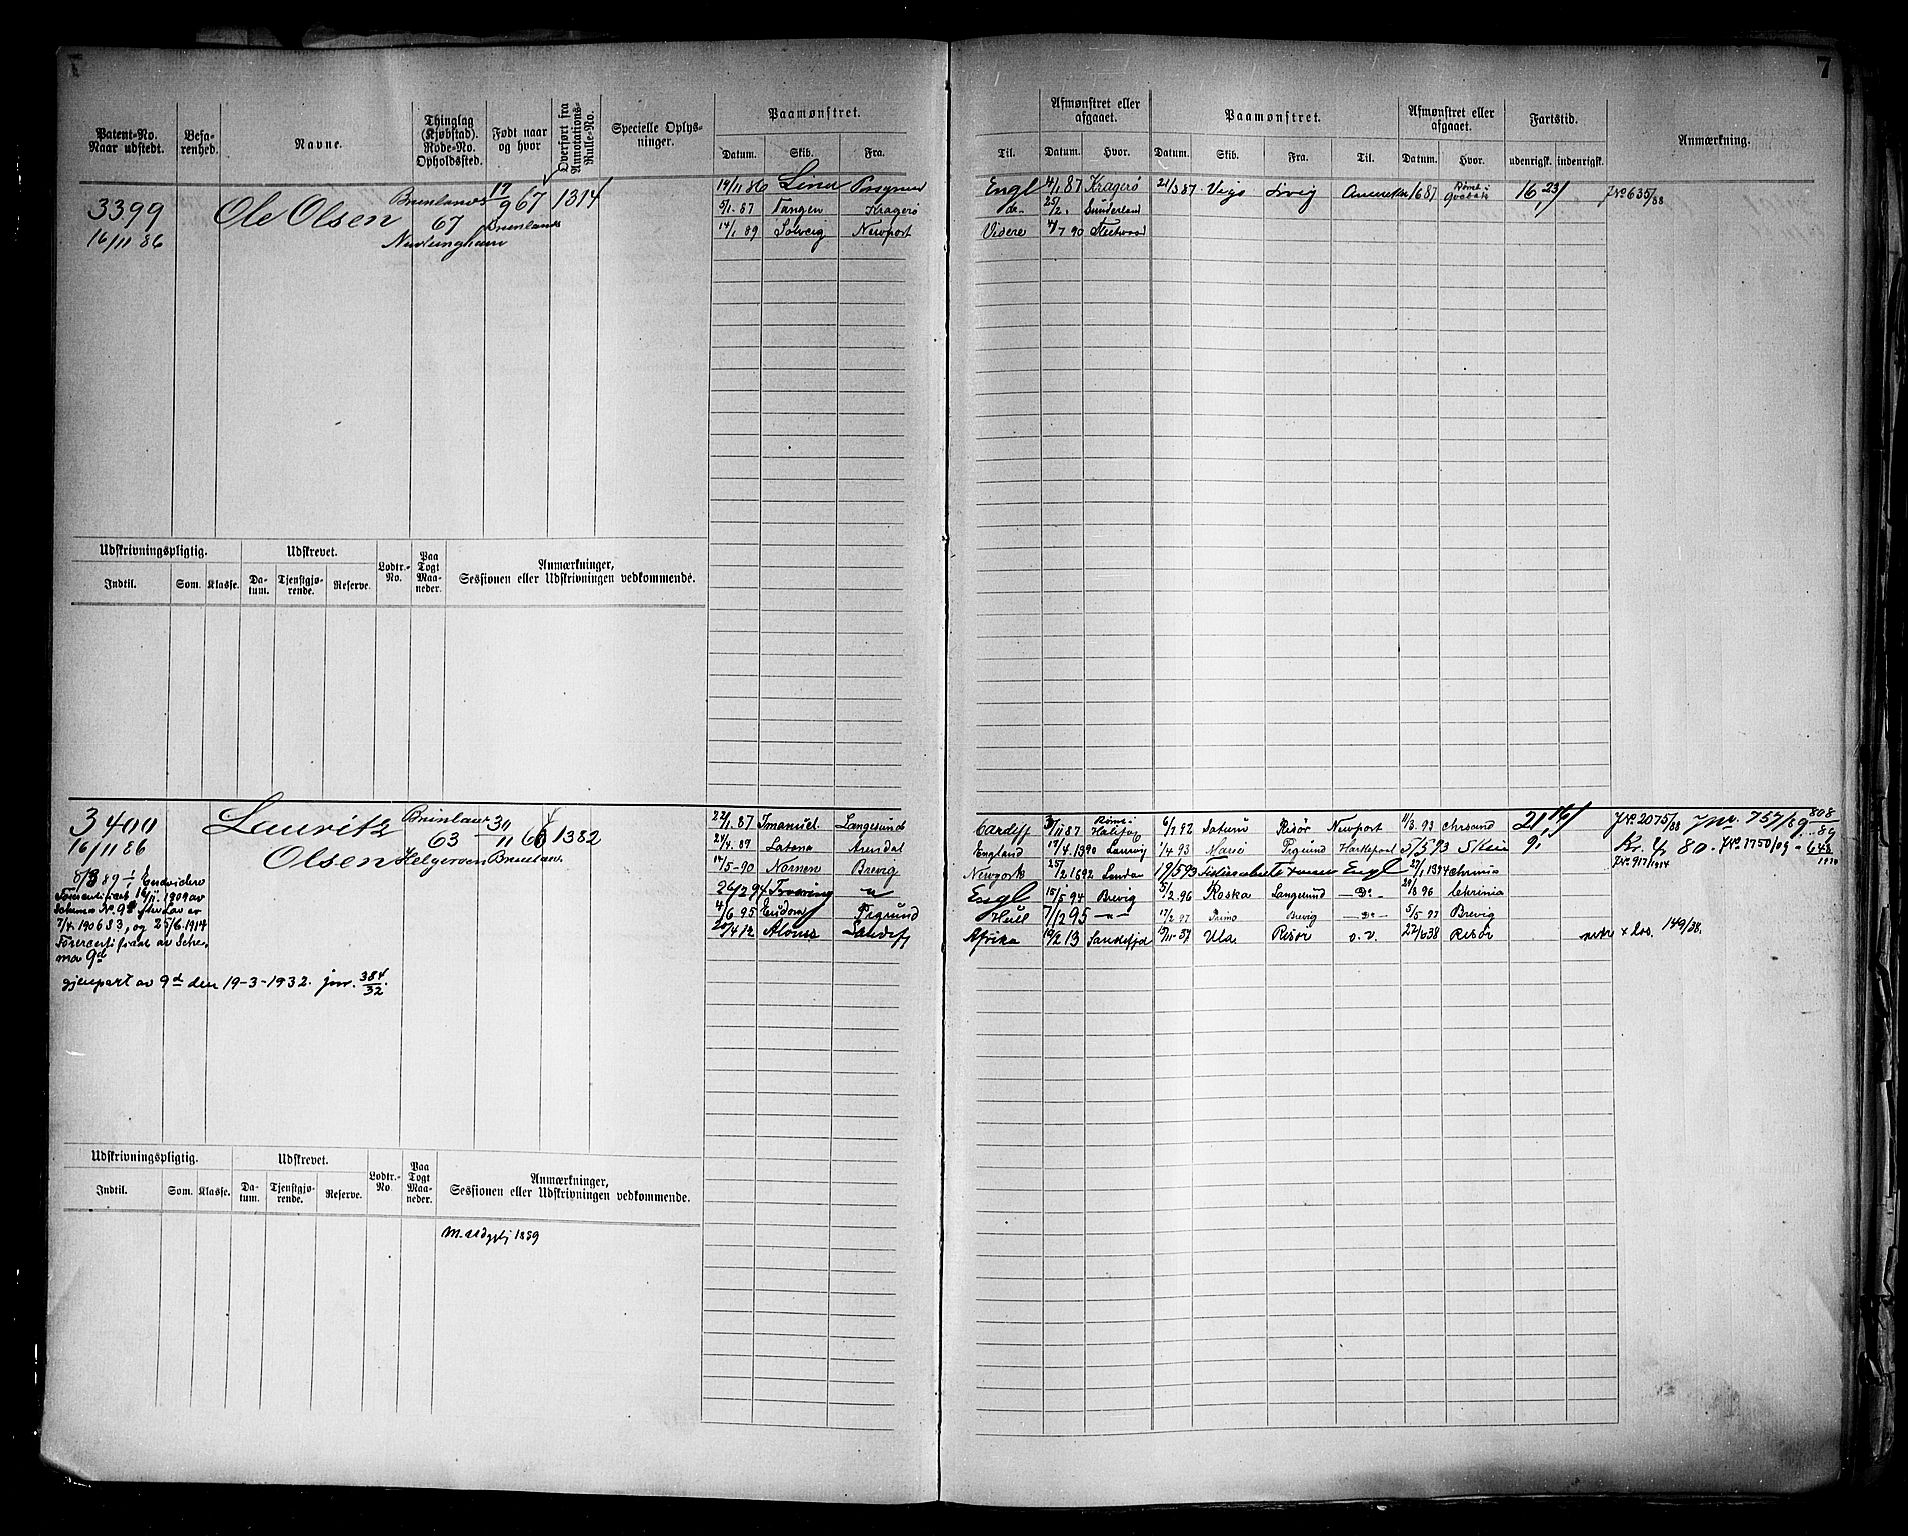 7
Patent-No. Naar udstedt.
Befarenhed.
Navne.
Thinglag (Kjøbstad). Rode-No. Opholdssted.
Født naar og hvor
Overført fra Annotations-Rulle-No.
Specielle Oplysninger.
Paamønstret.
Datum. Skib. Fra. Til.
Afmønstret eller afgaaet.
Datum. Hvor.
Paamønstret.
Datum. Skib. Fra. Til.
Afmønstret eller afgaaet.
Datum. Hvor.
Fartstid.
udenrigsk. indenrigsk.
Anmærkning.
3399
16/11 86
Ole Olsen
Brunlanes
67
17/9 67
Brunlanes
1314
19/11 86 Lina Engl 4/1 87 Kragerø 21/3 87 Amerika 16 23/ JNo 635/88
5/1 87 Tangen Kragerø do 25/2 Sunderland
14/1 89 Solveig Newport Videre 4/7 90
Udskrivningspligtig.
Indtil. Som. Klasse.
Udskrevet.
Datum. Tjenstgjørende. Reserve.
Lodtr.-No.
Paa Togt Maaneder.
Anmærkninger, Sessionen eller Udskrivningen vedkommende.
3400
16/11 86
Lauritz
Olsen
Brunlanes
63
Helgeroen
30/11 66
Brunlanes
1382
22/1 87 Imanuel Langesund Cardiff 3/11 87 6/7 92 Saturn Risør Newport 11/3 93 Chrsand 21, 16/ JNo 2075/88 Jnr. 757/89 808/89
24/4 89 Latona Arendal England 19/4 1390 Laurvig 1/4 93 9, Kr. 4/ 80 - JNo 1750/09 -
14/5-90 Nornen Brevig Newport 25/2 1692 19/5 93 Engl 27/1 1894 Chrinia JNo 917/1914
26/2 94 Engl 15/5 94 Brevig 5/2 96 Koska Langesund - Do - 29/8 96 Chrinia
4/6 95 Hull 7/2 95 - " - 17/2 97 Primo Brevig - Do - 5/5 97 Brevig
20/4 12 Afrika 19/2 13 Sandefjd 19/11 37 Ula Risør o.v. 22/6 38 Risør x los. 149/38.
8/3 89 Endvidere
1909 av
Schema No 9 efter Lov av
7/4 1906 § 3, og 25/6 1914
Førercertifikat av Sche-
ma 9d
gjenpart av 9d den 19-3-1932. jnr. 384/32.
Udskrivningspligtig.
Indtil. Som. Klasse.
Udskrevet.
Datum. Tjenstgjørende. Reserve.
Lodtr.-No.
Paa Togt Maaneder.
Anmærkninger, Sessionen eller Udskrivningen vedkommende.
1889